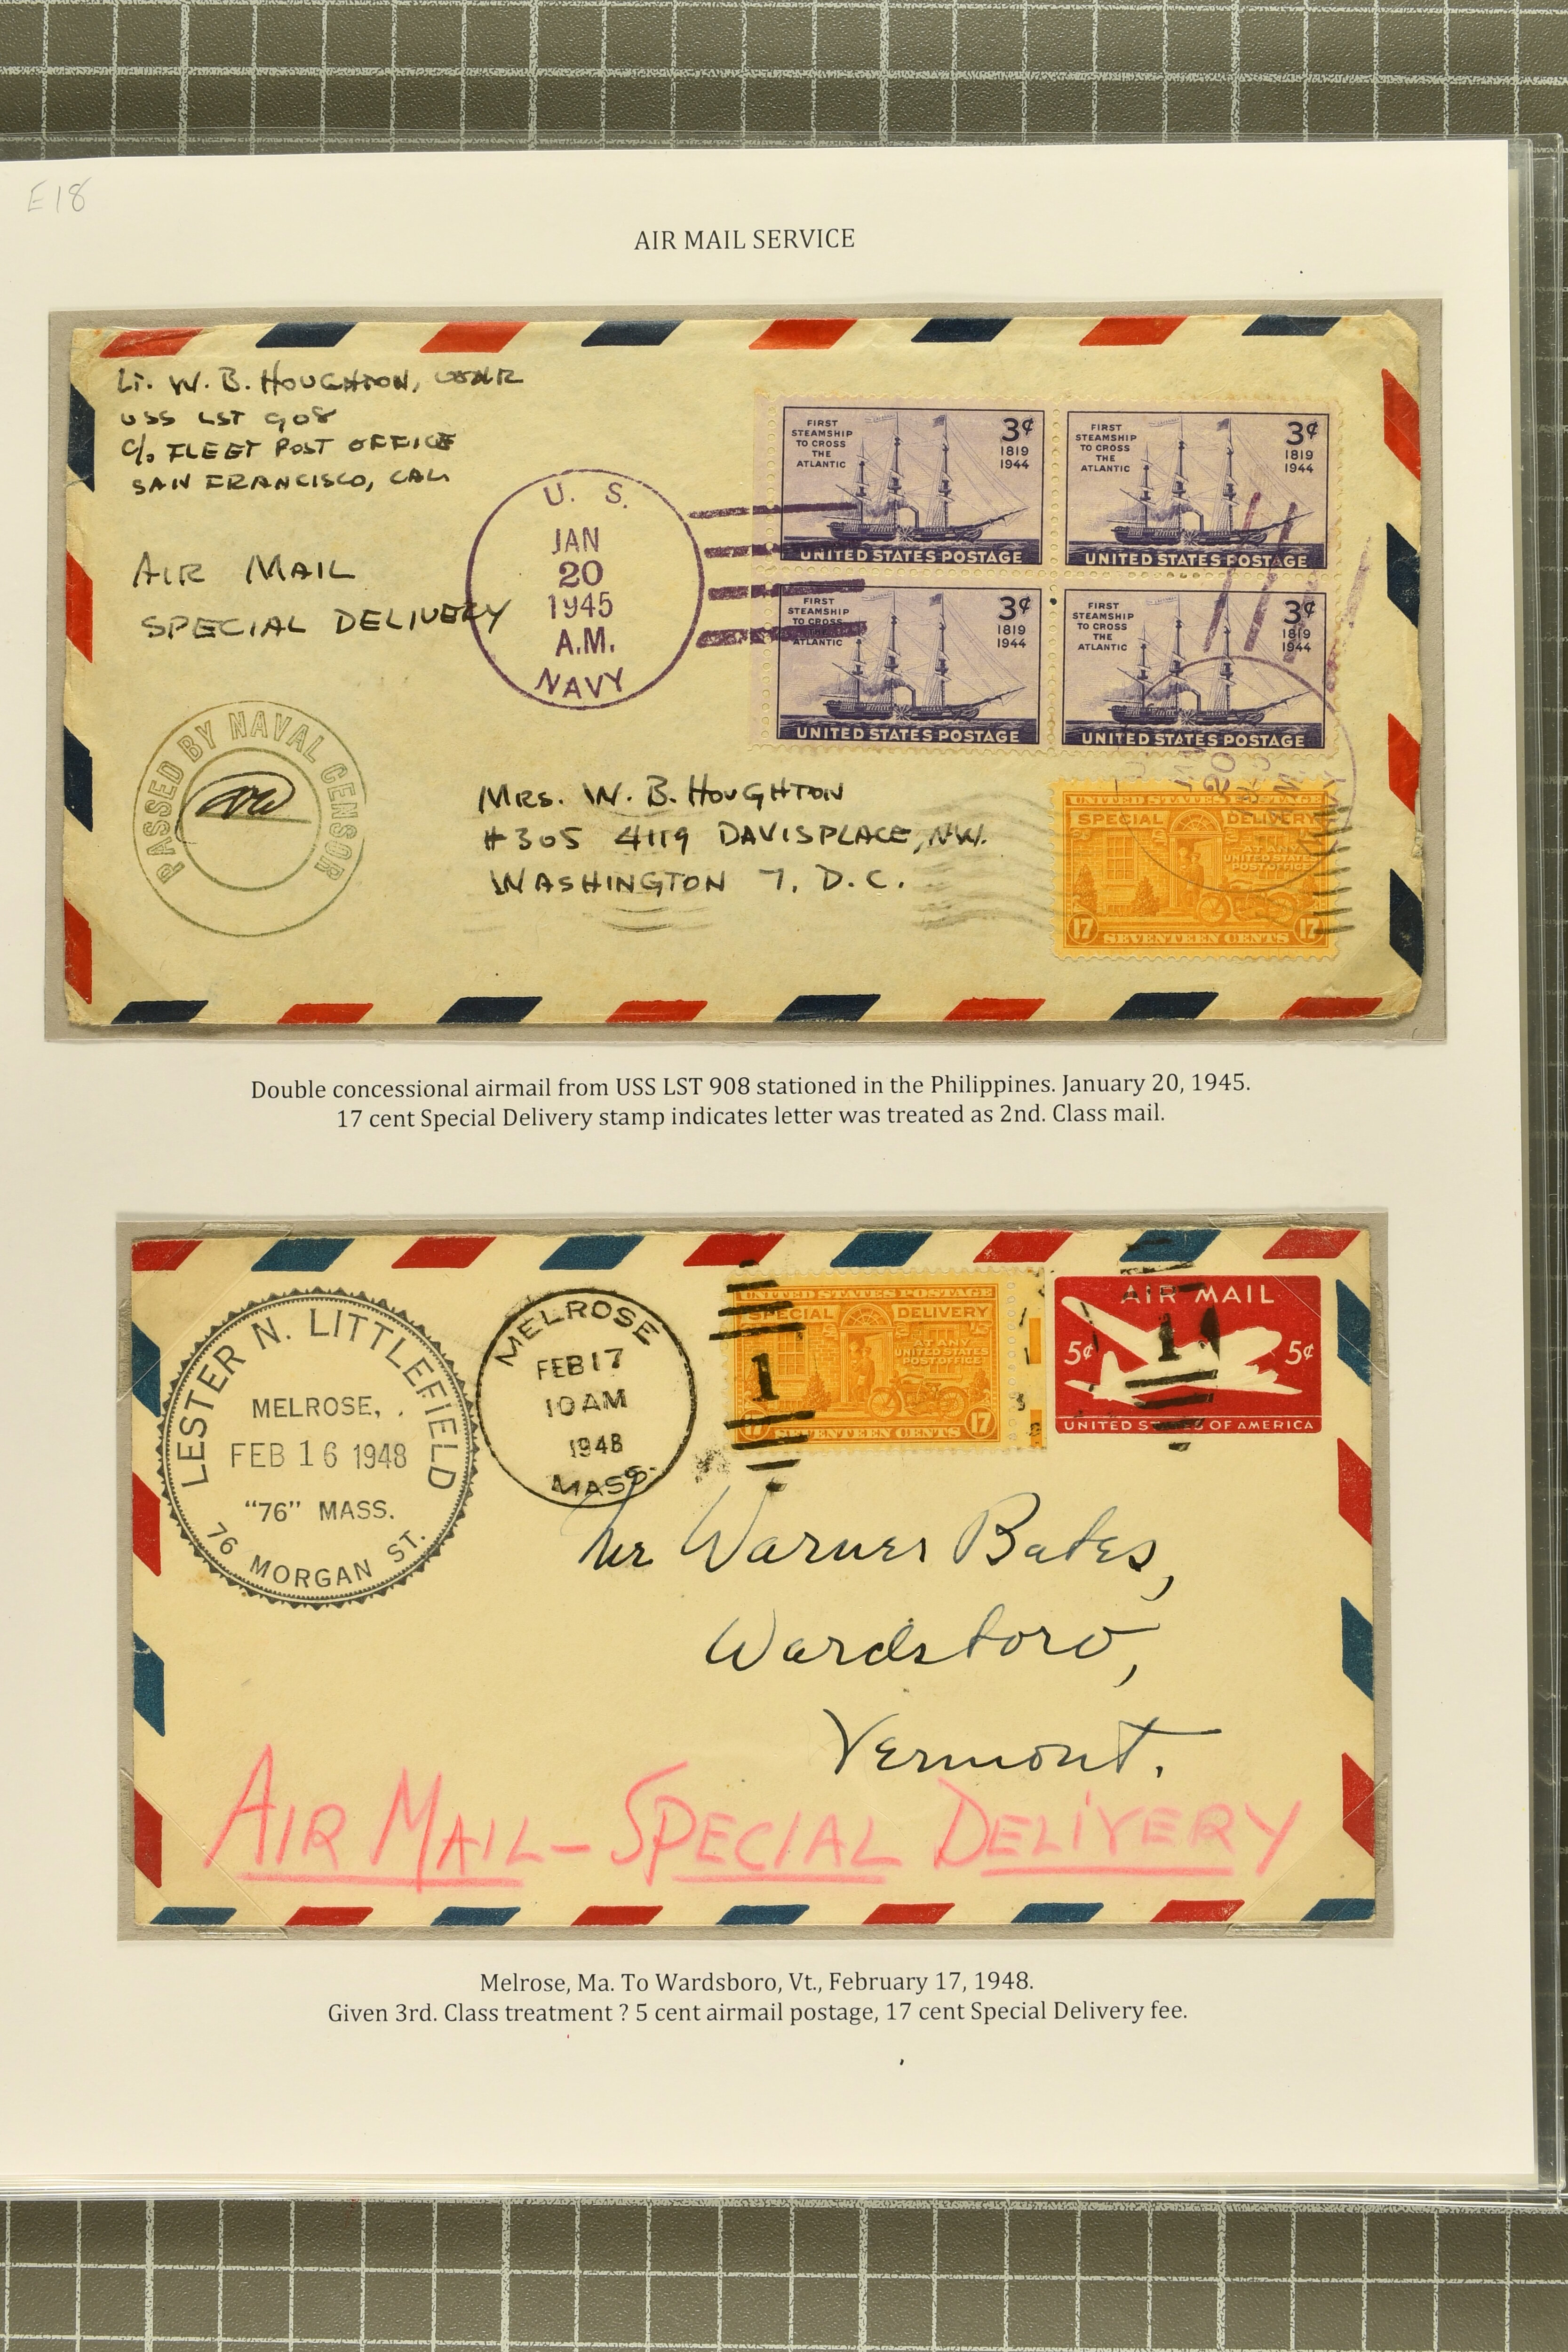 E18
AIR MAIL SERVICE
LT. W. B. HOUGHTON, USNR
USS LST 908
C/O FLEET POST OFFICE
SAN FRANCISCO, CAL.
AIR MAIL
SPECIAL DELIVERY
U. S.
JAN
20
1945
A.M.
NAVY
FIRST
STEAMSHIP
TO CROSS
THE
ATLANTIC
3¢
1819
1944
UNITED STATES POSTAGE
FIRST
STEAMSHIP
TO CROSS
THE
ATLANTIC
3¢
1819
1944
UNITED STATES POSTAGE
FIRST
STEAMSHIP
TO CROSS
THE
ATLANTIC
3¢
1819
1944
UNITED STATES POSTAGE
FIRST
STEAMSHIP
TO CROSS
THE
ATLANTIC
3¢
1819
1944
UNITED STATES POSTAGE
PASSED BY NAVAL CENSOR
MRS. W. B. HOUGHTON
#305 4119 DAVIS PLACE, NW.
WASHINGTON 7, D.C.
20
NAVY
UNITED STATES POSTAGE
SPECIAL DELIVERY
AT ANY
UNITED STATES
POST OFFICE
17 SEVENTEEN CENTS 17
Double concessional airmail from USS LST 908 stationed in the Philippines. January 20, 1945.
17 cent Special Delivery stamp indicates letter was treated as 2nd. Class mail.
LESTER N. LITTLEFIELD
MELROSE,
FEB 16 1948
"76" MASS.
76 MORGAN ST.
MELROSE
FEB 17
10 AM
1948
MASS.
1
UNITED STATES POSTAGE
SPECIAL DELIVERY
AT ANY
UNITED STATES
POST OFFICE
17 SEVENTEEN CENTS 17
AIR MAIL
5¢ 1 5¢
UNITED STATES OF AMERICA
Mr Warner Bates,
Wardsboro,
Vermont.
AIR MAIL – SPECIAL DELIVERY
Melrose, Ma. To Wardsboro, Vt., February 17, 1948.
Given 3rd. Class treatment ? 5 cent airmail postage, 17 cent Special Delivery fee.